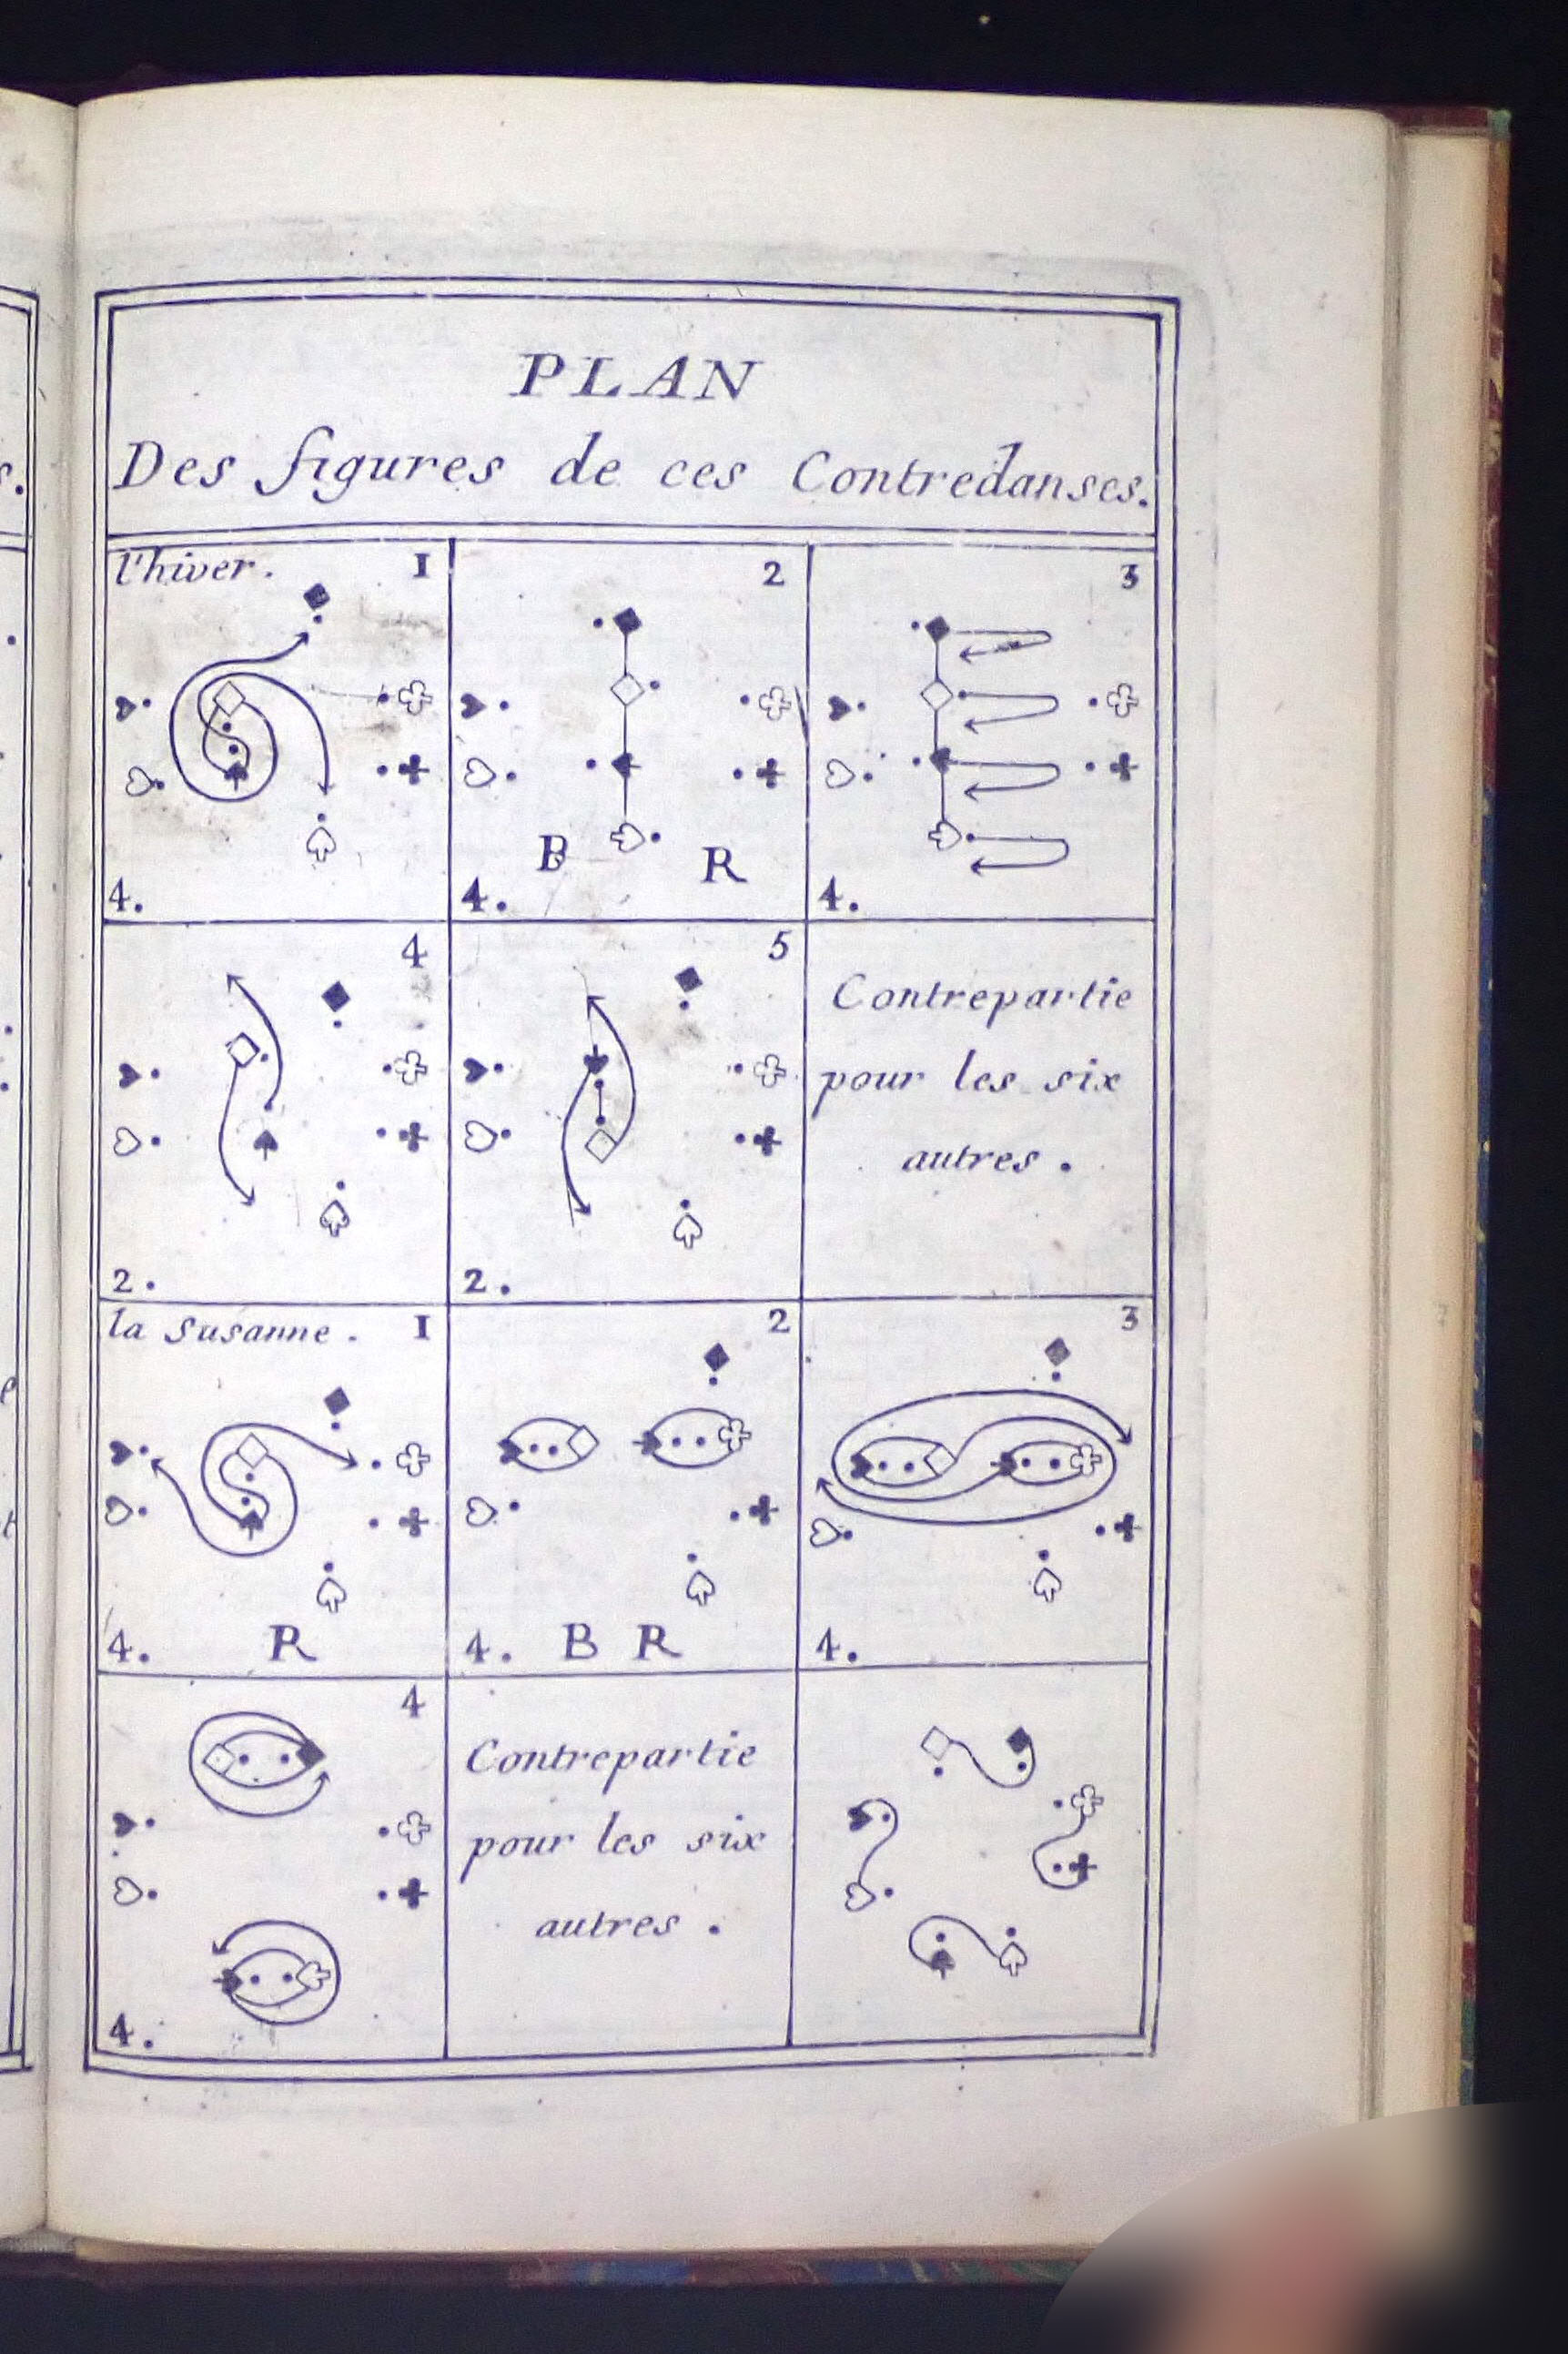 PLAN
Des figures de ces Contredanses.
l'hiver. 1
4.
2
B R
4.
3
4.
4
2.
5
2.
Contrepartie
pour les six
autres.
la Susanne. 1
4. R
2
4. B R
3
4.
4
4.
Contrepartie
pour les six
autres.